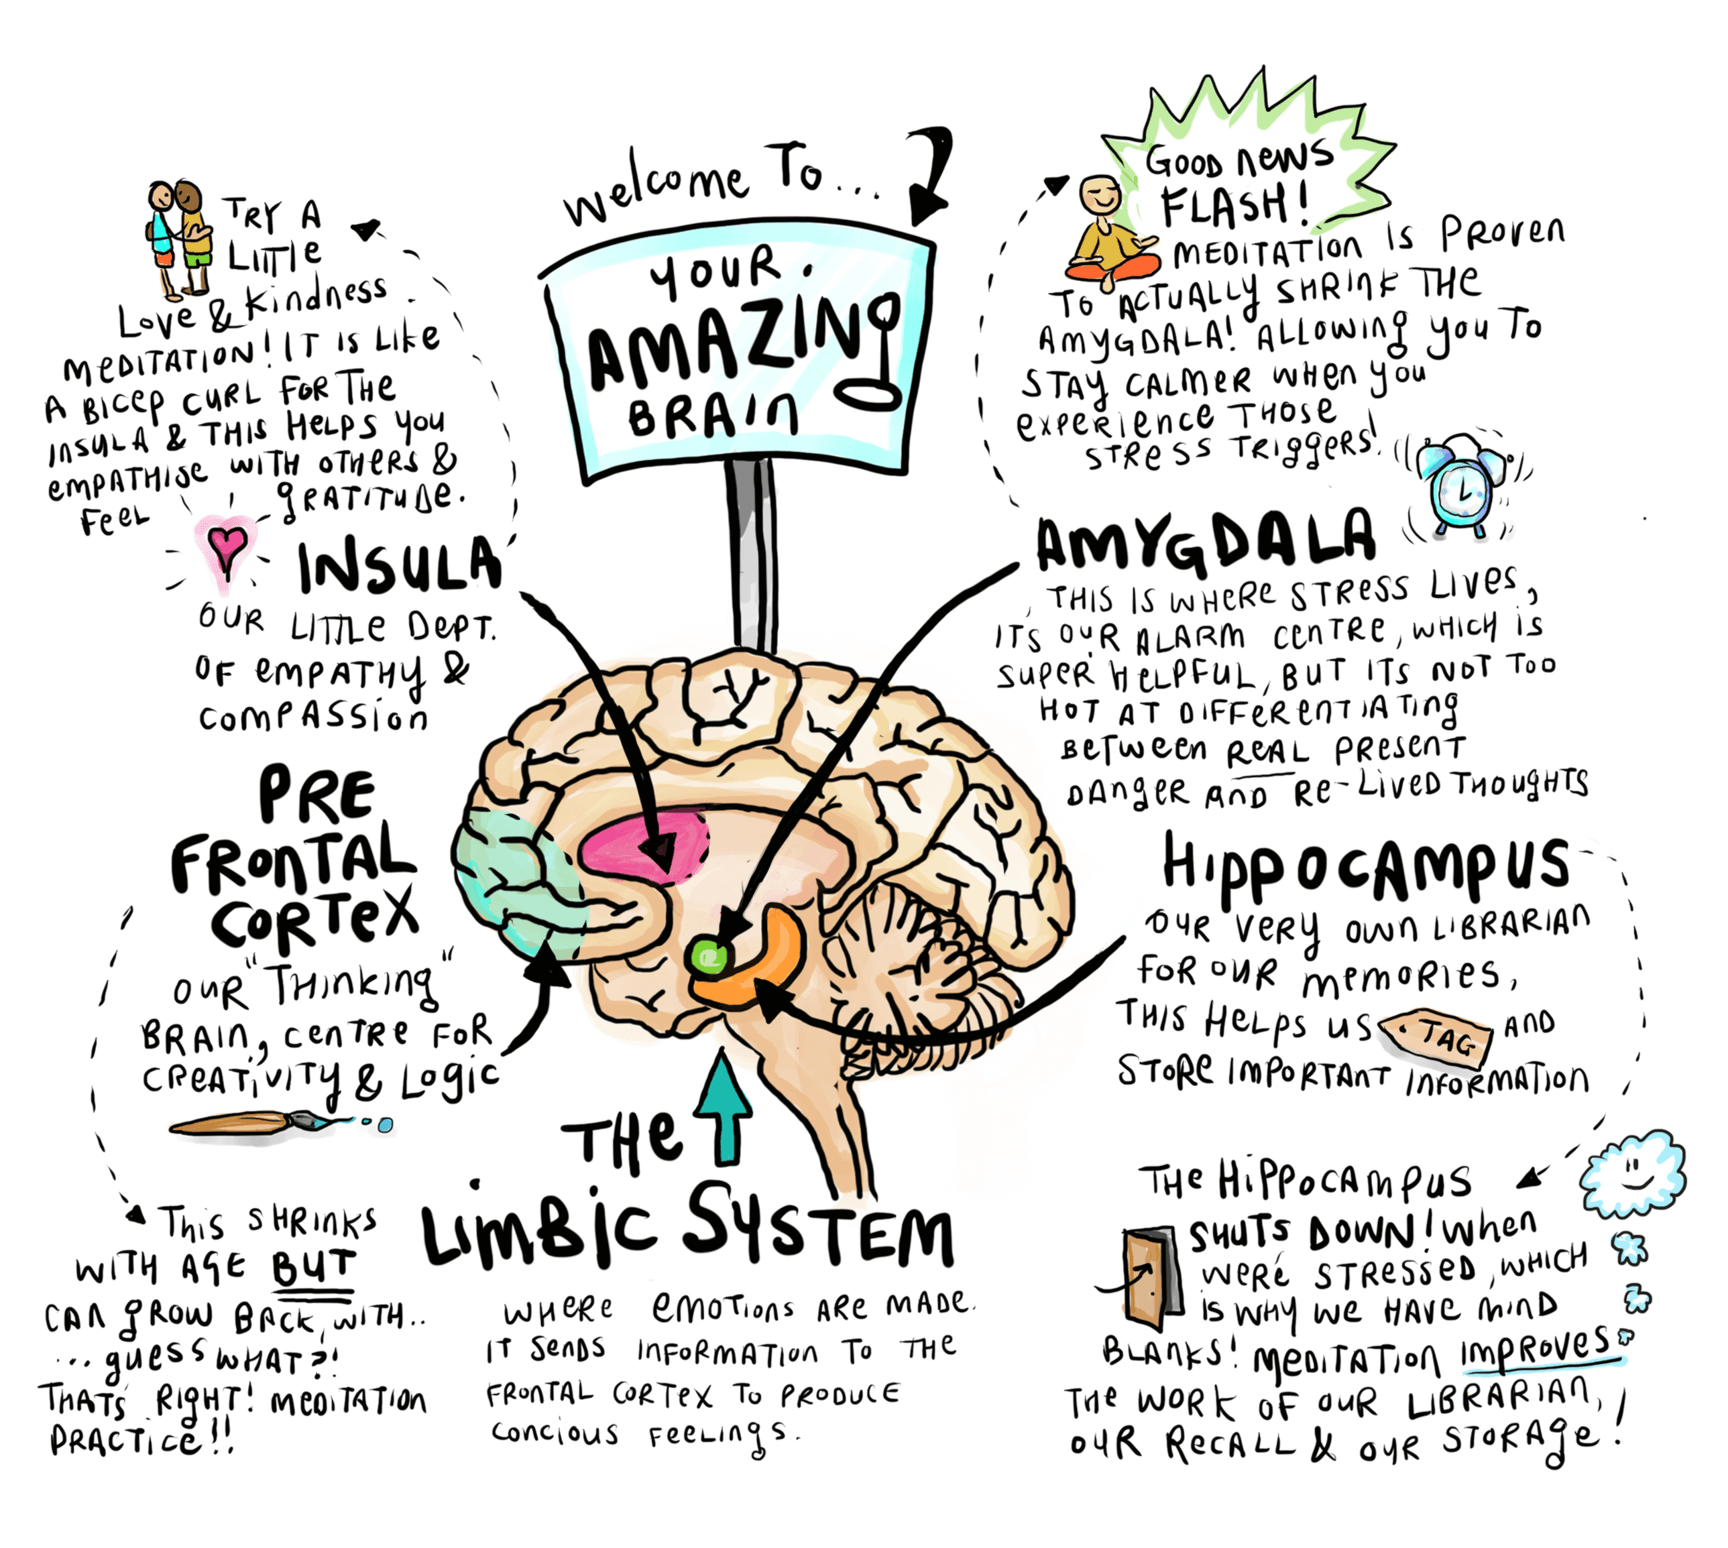 welcome To...
YOUR
AMAZING
BRAIN
TRY A
LITTLE
LOVE & KINDNESS
MEDITATION! IT IS LIKE
A BICEP CURL FOR THE
INSULA & THIS HELPS YOU
EMPATHISE WITH OTHERS &
FEEL GRATITUDE.
INSULA
OUR LITTLE DEPT.
OF EMPATHY &
COMPASSION
PRE
FRONTAL
CORTEX
OUR "THINKING"
BRAIN, CENTRE FOR
CREATIVITY & LOGIC
THIS SHRINKS
WITH AGE BUT
CAN GROW BACK, WITH..
...GUESS WHAT?!
THATS RIGHT! MEDITATION
PRACTICE!!
THE
LIMBIC SYSTEM
WHERE EMOTIONS ARE MADE.
IT SENDS INFORMATION TO THE
FRONTAL CORTEX TO PRODUCE
CONCIOUS FEELINGS.
GOOD NEWS
FLASH!
MEDITATION IS PROVEN
TO ACTUALLY SHRINK THE
AMYGDALA! ALLOWING YOU TO
STAY CALMER WHEN YOU
EXPERIENCE THOSE
STRESS TRIGGERS!
AMYGDALA
THIS IS WHERE STRESS LIVES,
IT'S OUR ALARM CENTRE, WHICH IS
SUPER HELPFUL, BUT ITS NOT TOO
HOT AT DIFFERENTIATING
BETWEEN REAL PRESENT
DANGER AND RE-LIVED THOUGHTS
HIPPOCAMPUS
OUR VERY OWN LIBRARIAN
FOR OUR MEMORIES,
THIS HELPS US TAG AND
STORE IMPORTANT INFORMATION
THE HIPPOCAMPUS
SHUTS DOWN! WHEN
WE'RE STRESSED, WHICH
IS WHY WE HAVE MIND
BLANKS! MEDITATION IMPROVES
THE WORK OF OUR LIBRARIAN,
OUR RECALL & OUR STORAGE!